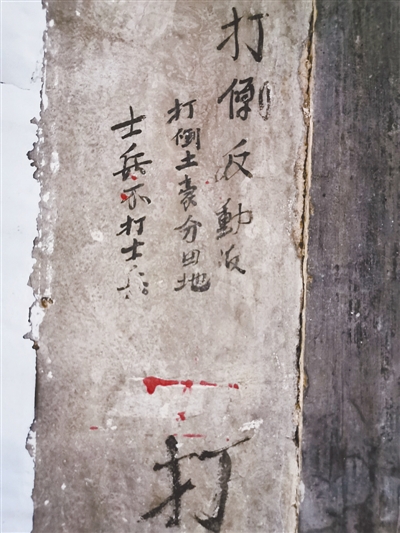 打倒反動派
打倒土豪分田地
士兵不打士兵
打